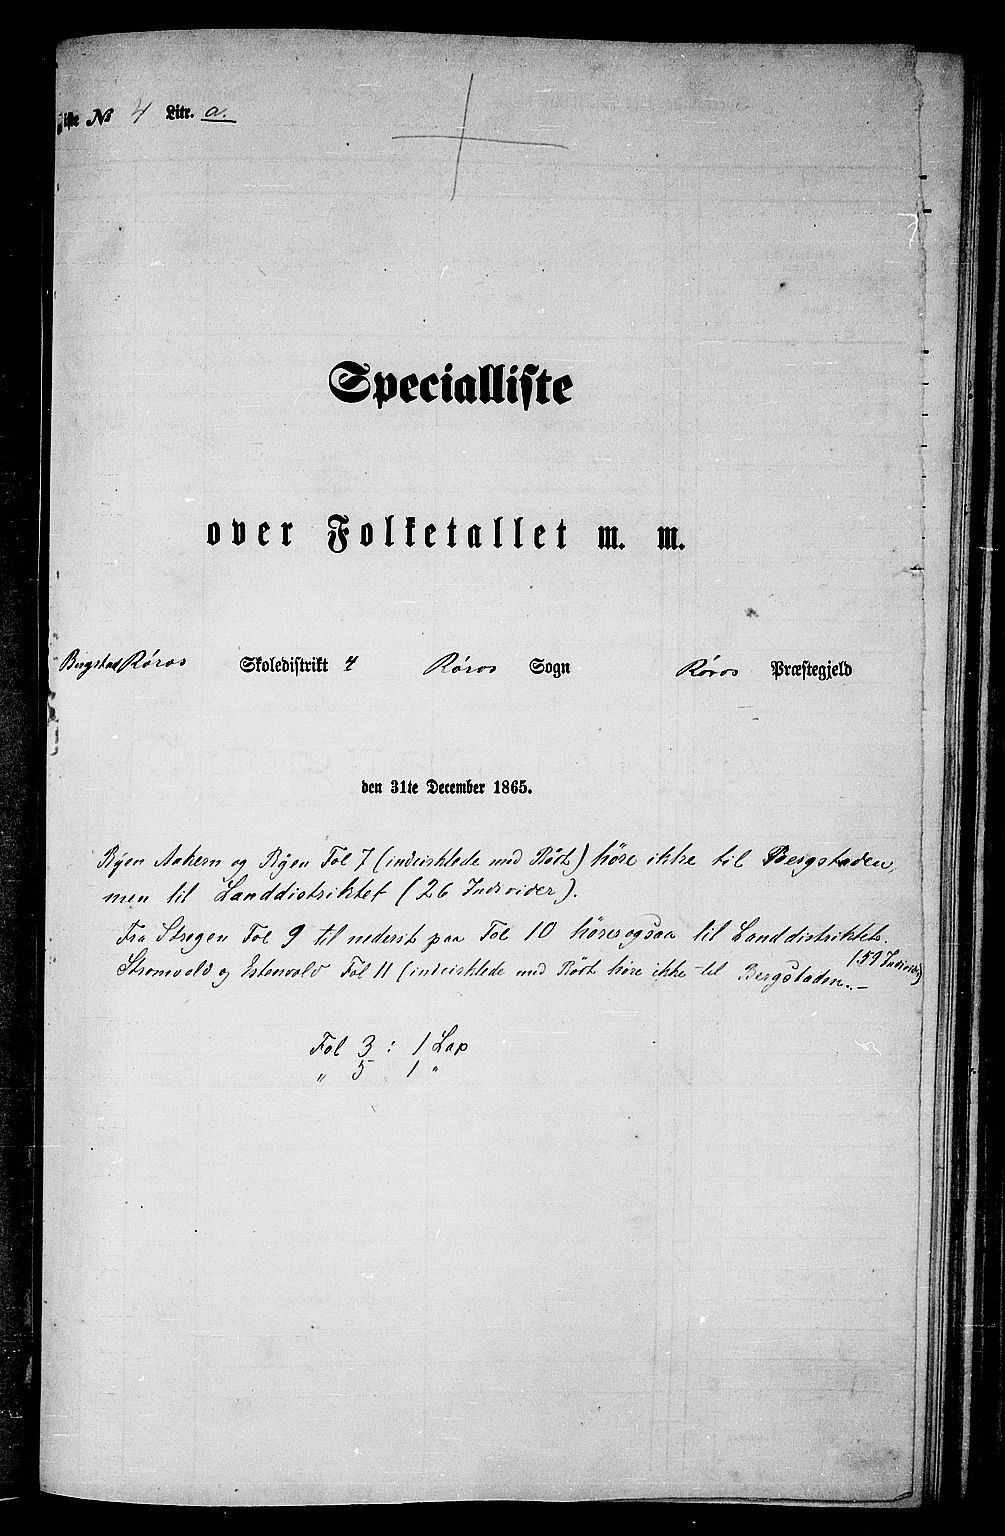 Liste № 4 Litr. a.
Specialliste
over Folketallet m. m.
Bergstad Røros Skoledistrikt 4 Røros Sogn Røros Præstegjeld
den 31te December 1865.
Ryen Aakern og Ryen Fol 7 (indcirklede med Rødt) høre ikke til Bergstaden,
men til Landdistriktet (26 Individer).
Fra Stregen Fol 9 til nederst paa Fol 10 høres ogsaa til Landdistriktet.
(59 Individer)
Strømvold og Estenvold Fol 11 (indcirklede med Rødt høre ikke til Bergstaden. –
Fol 3 : 1 Lap
" 5 1 "